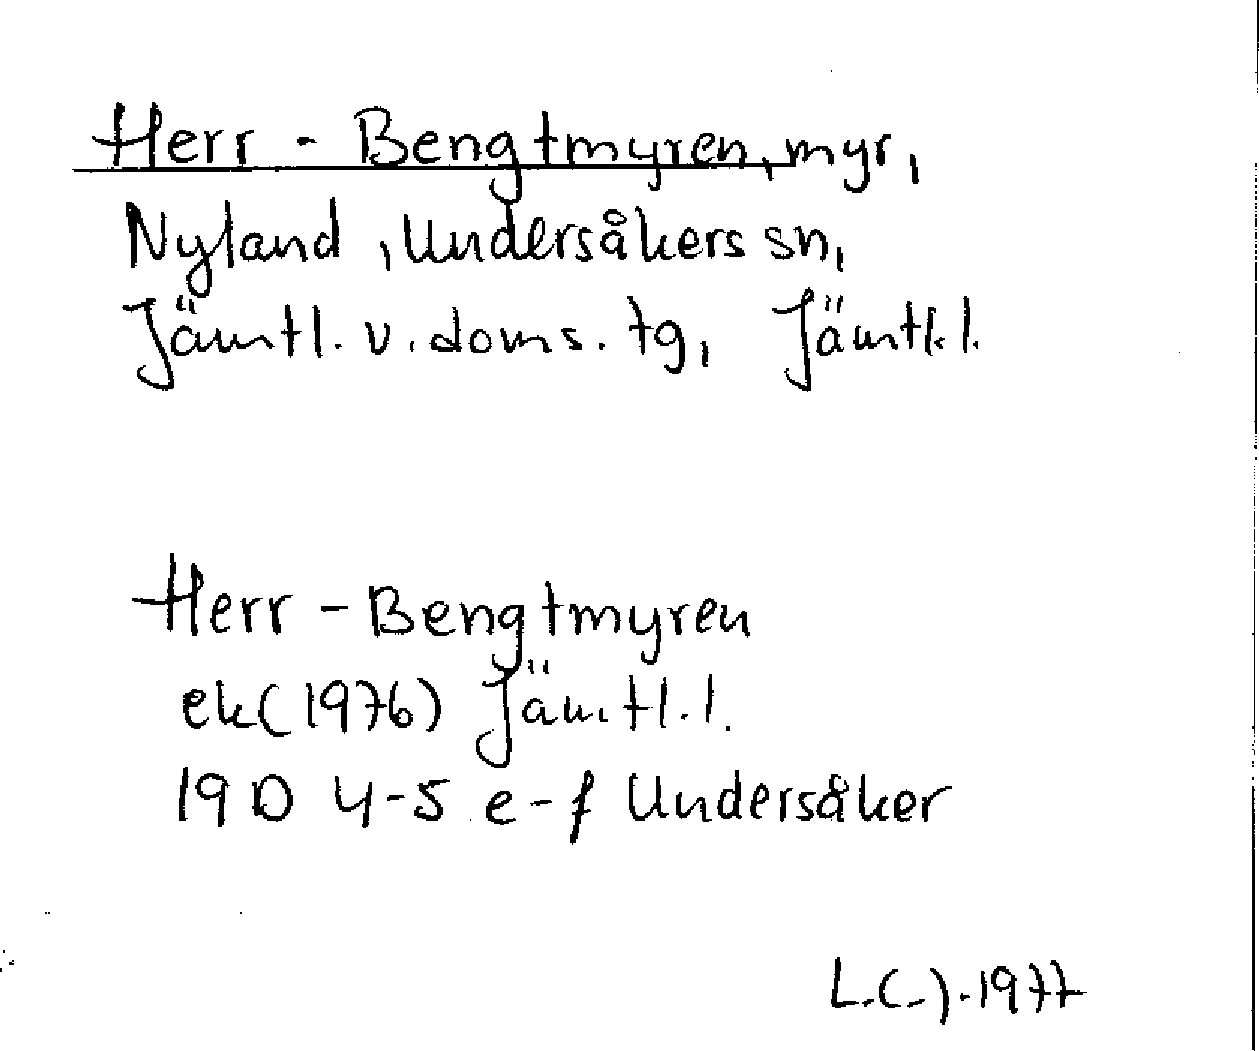 Herr-Bengtmyren, myr,
Nyland, Undersåkers sn,
Jämtl. v. doms. tg, Jämtl. l.
Herr-Bengtmyren
ek (1976) Jämtl. l.
19 D 4-5 e-f Undersåker
1977